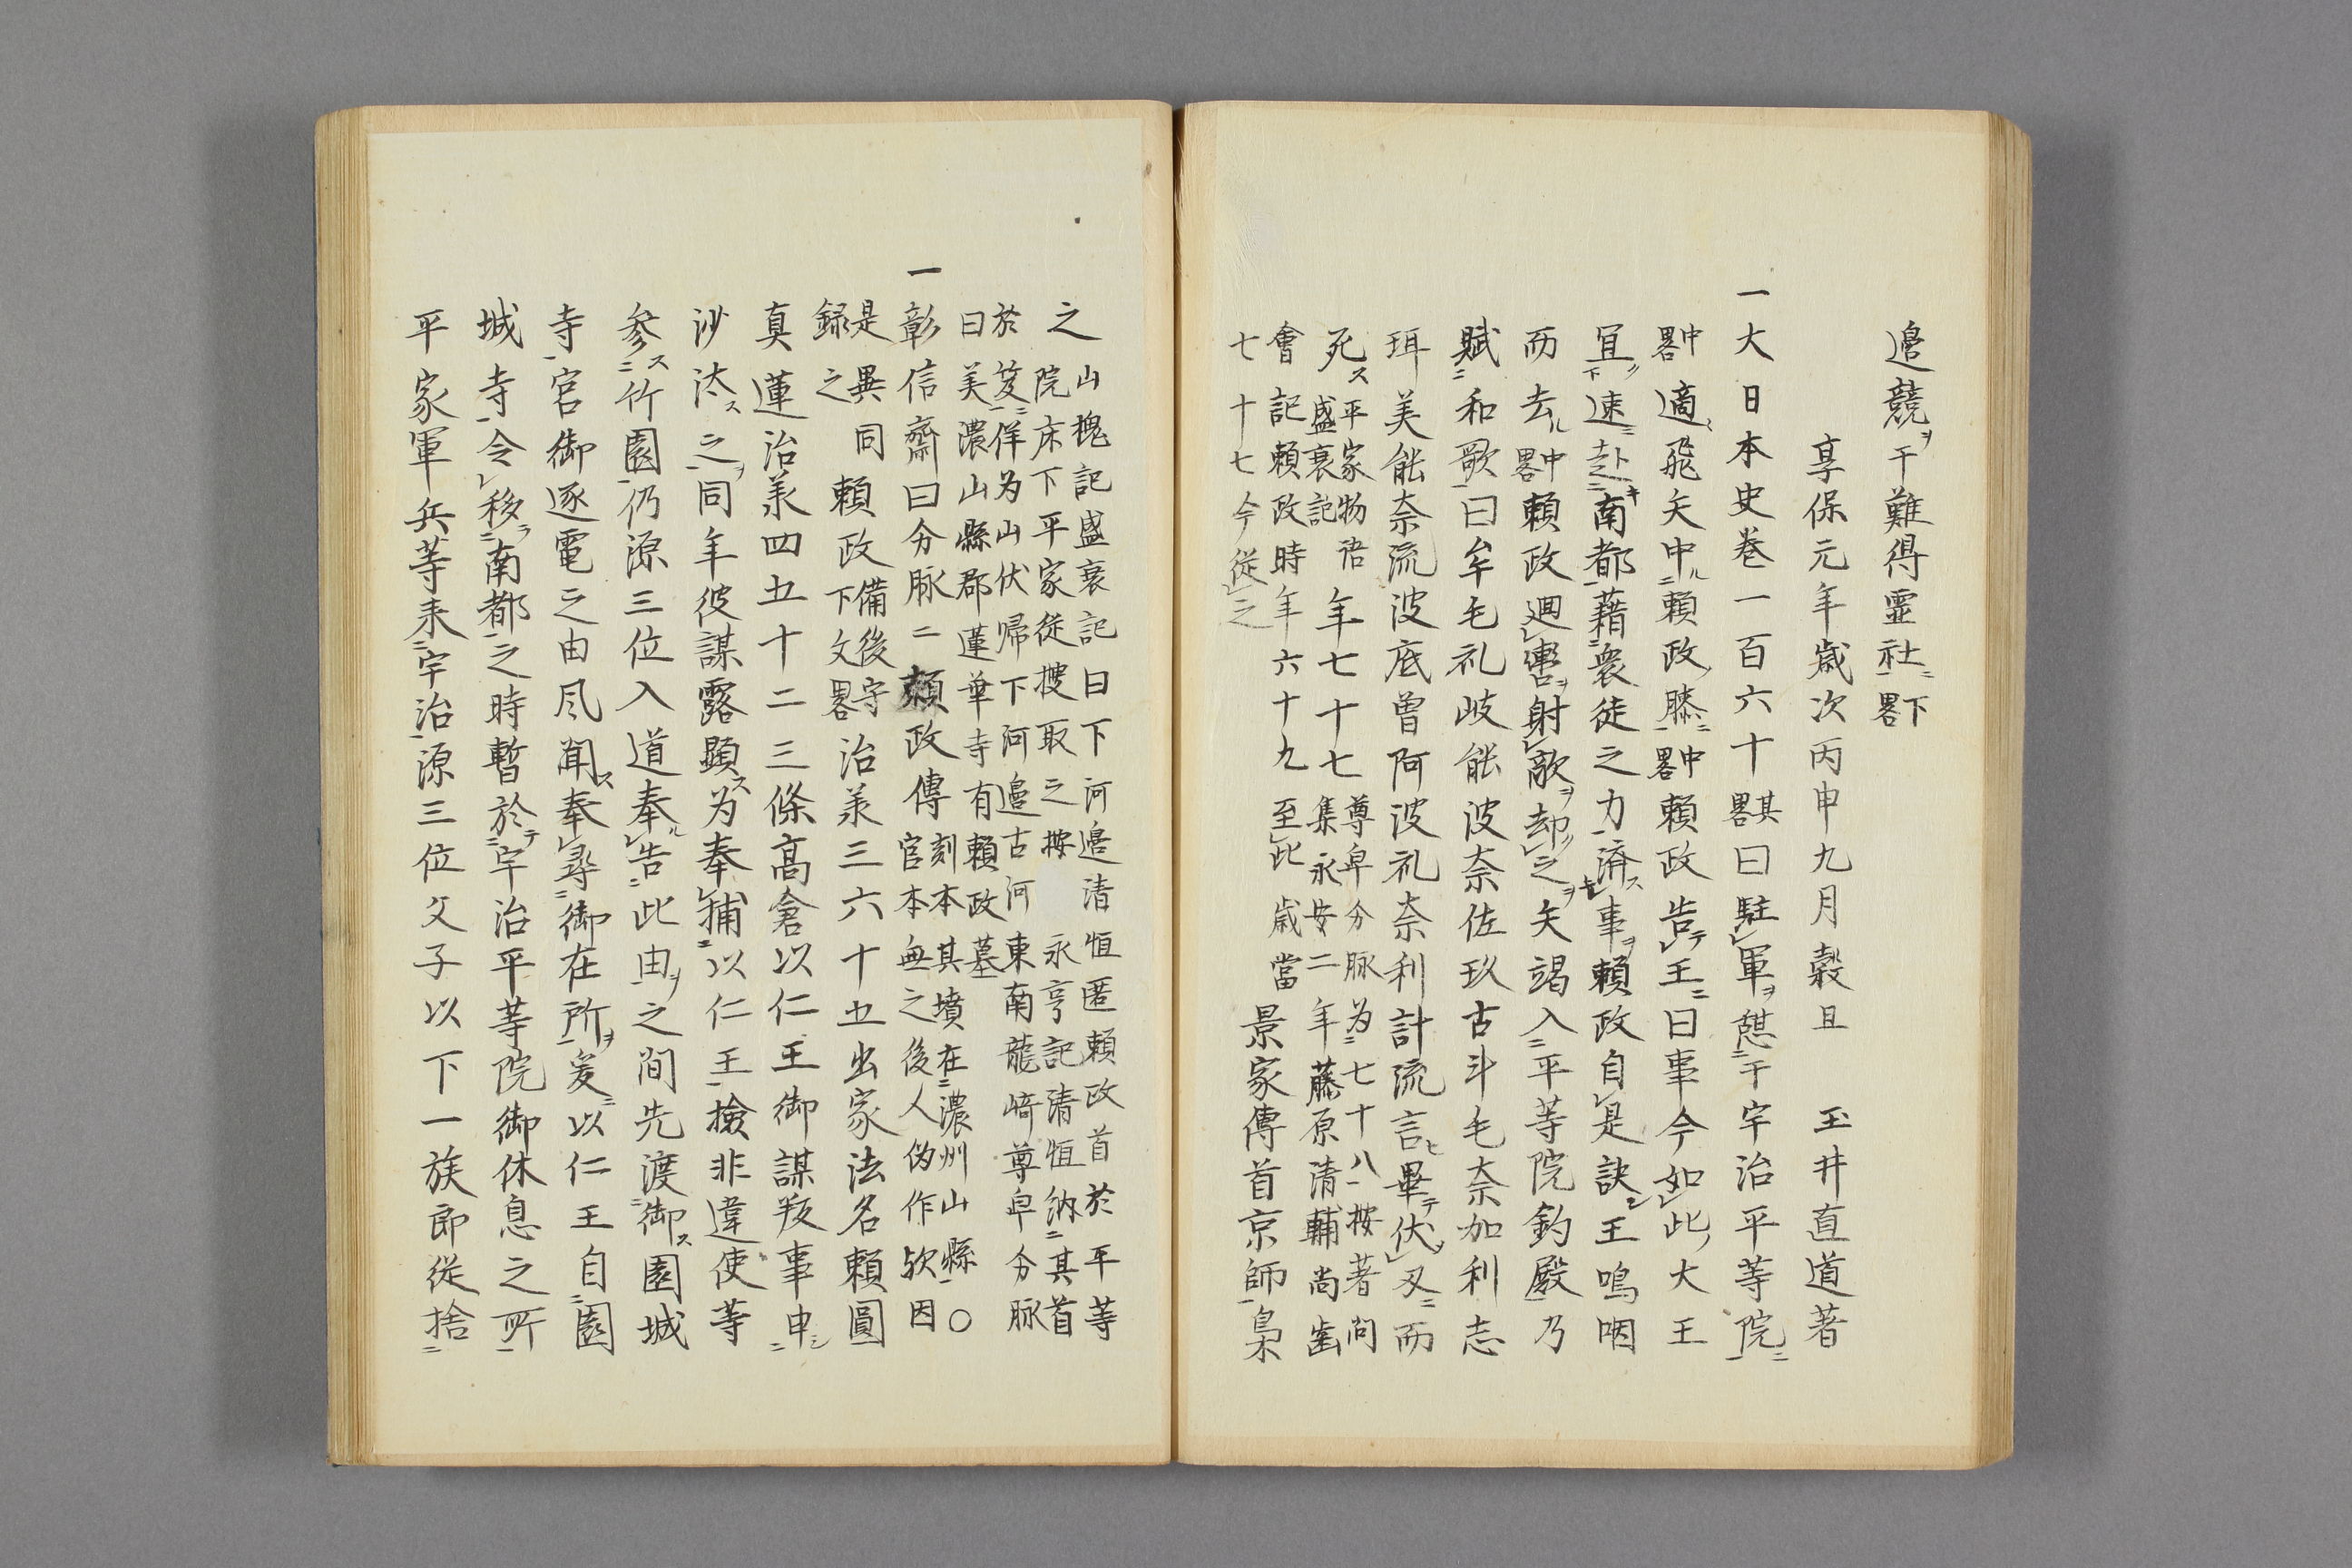 邉競ヲ于難得靈社ニ下畧
享保元年歳次丙申九月穀旦 玉井直道著
一大日本史巻一百六十其畧曰駐レ軍ヲ憇ニ于宇治平等院一ニ
中畧適ミ飛矢中ニル頼政ノ膝一ニ中畧頼政告レテ王ニ曰事今如レ此ノ大王
宜下ク速ニ赴ニキ南都一藉ニ衆徒之力一済スキ事ヲ頼政自レ是訣シ王嗚咽
而去ル中畧頼政廻レ轡ヲ射レ敵ヲ却レク之ヲ矢竭入ニ平等院釣殿一乃
賦ニ和歌一曰牟毛礼岐能波奈佐玖古斗毛奈加利志
珥美能奈流波底曽阿波礼奈利計流言ヒ畢テ伏レ刃ニ而
死ス平家物语
盛衰記年七十七尊卑分脉为ニ七十八一按著问
集永安二年藤原清輔尚歯
會記頼政時年六十九至レ此歳當
七十七今従レ之景家傳首京師一梟
之山槐記盛衰記曰下河邉清恒匿頼政首於平等
院床下平家従捜取之按 永亨記清恒納ニ其首
於笈一ニ佯为山伏帰下河邉古河東南龍崎尊卑分脉
曰美濃山縣郡蓮華寺有頼政墓
一彰信齋曰分脉ニ頼政傳刻本其墳在ニ濃州山縣一〇
官本無之後人伪作欤因
是異同
録之頼政備後守
下文畧治羕三六十五出家法名頼圓
真蓮治羕四五十二三條高倉以仁王御謀叛事申ニシ
沙汰ス之ヲ同年彼謀露顕ス为奉レ捕ニ以仁王一撿非違使等
参ニス竹園一仍源三位入道奉レル告ニ此由一ヲ之間先渡ニ御ス園城
寺一宮御逐電之由风聞ス奉レ尋ニ御在所一ヲ爰ニ以仁王自ニ園
城寺一令レ移ニラ南都一之時暫於ニテ宇治平等院御休息之所一
平家軍兵等来ニ宇治一源三位父子以下一族郎従捨ニ